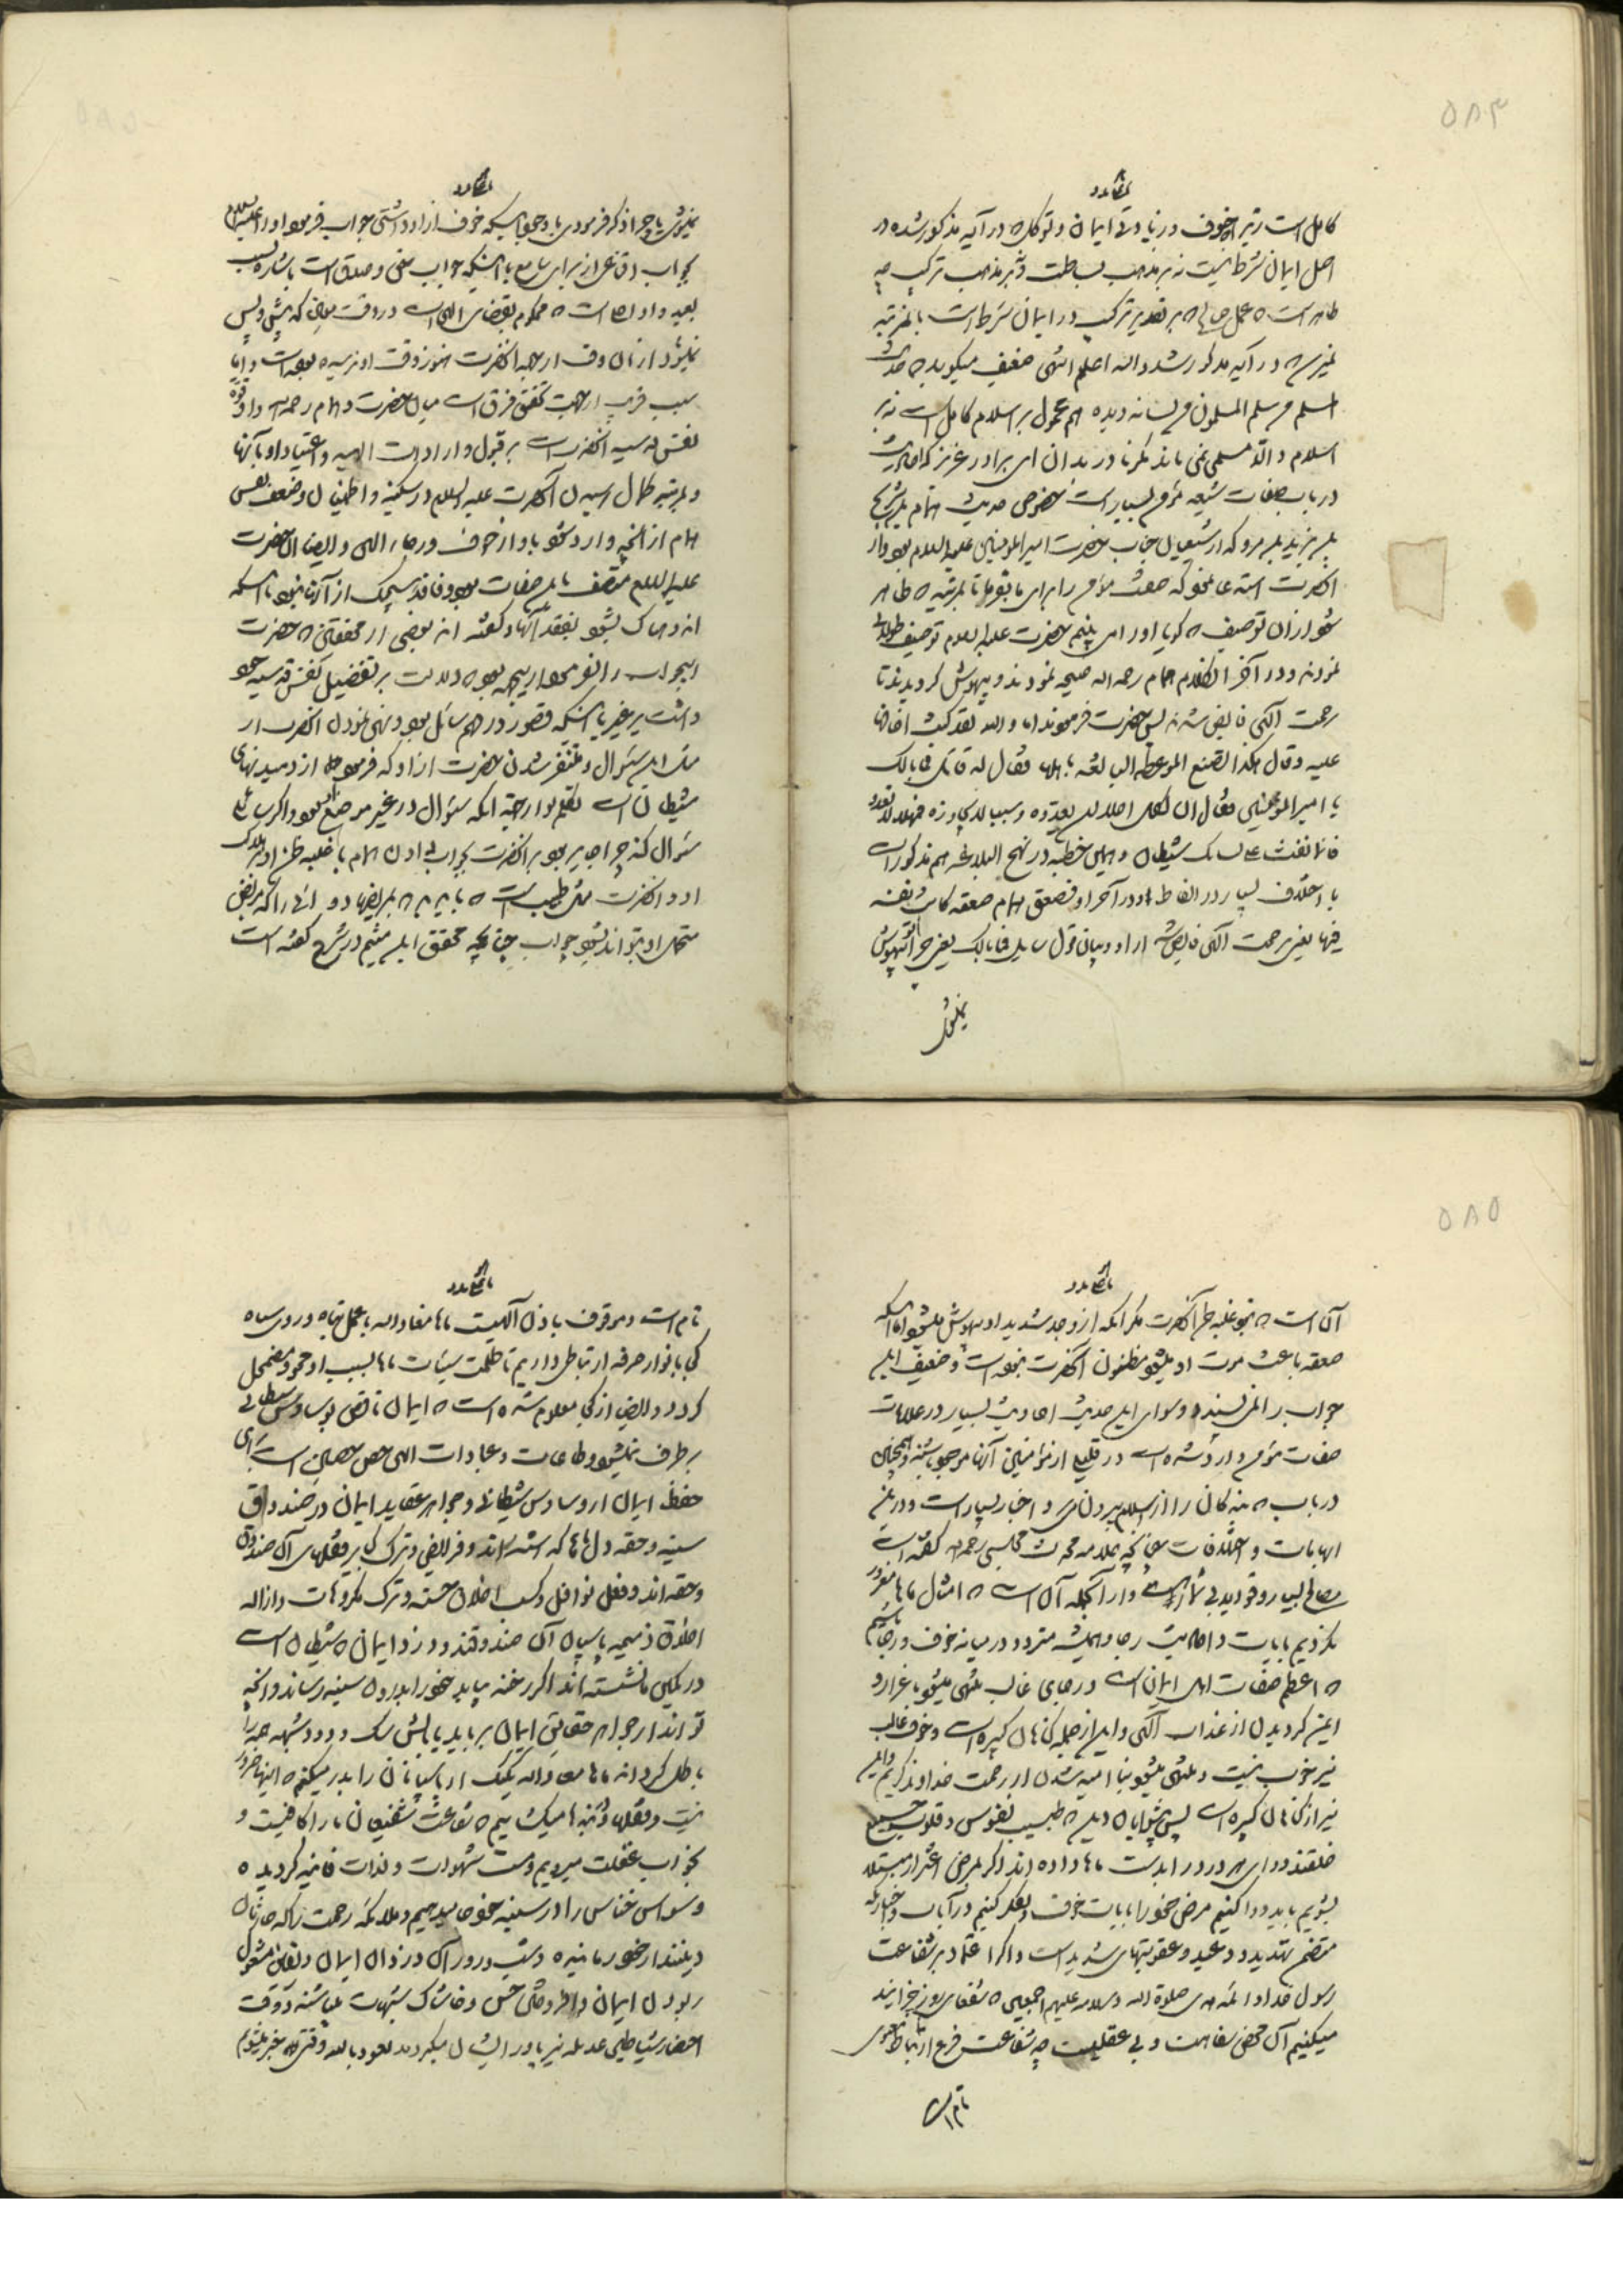 ۵۸۳
کامل است زیرا خوف در زیادتی ایمان و توکل که در آیه مذکور شده در
اصل ایمان شرط نیست نه بر مذهب بساطت و نه بر مذهب ترکیب چه
ظاهر است که عمل صالح که بر تقدیر ترکیب در ایمان شرط است باین مرتبه
نیست که در آیه مذکور شد والله اعلم انتهی ضعیف میگوید که حدیث
المسلم من سلم المسلمون من لسانه ویده هم محمول بر اسلام کامل است نه بر
اسلام والا مسلمی نمی ماند مگر نادر بدان ای برادر عزیز که احادیث
در باب صفات شیعه مؤمن بسیار است خصوص حدیث همام بن شریح
بن یزید بن مرو که از شیعیان جناب حضرت امیر المؤمنین علیه السلام بود و از
آنحضرت استدعا نمود که صفت مؤمن را برای ما بفرما تا بمرتبه که ظاهر
شود از آن توصیف که گویا او را می بینم حضرت علیه السلام توصیف طولانی
نمودند و در آخر الکلام همام رحمه الله صیحه نمودند و بیهوش گردیدند تا
رحمت الهی فایض شدند پس حضرت فرمودند اما والله لقد کنت اخافها
علیه وقال هکذا تصنع المواعظ البالغه باهلها فقال له قائل فما بالک
یا امیر المؤمنین فقال ان لکل اجلا لن یعدوه وسببا لا یجاوزه فمهلا لا تعد
فانما نفث علی لسانک شیطان و همین خطبه در نهج البلاغه هم مذکور است
با اختلاف بسیار در الفاظ و در آخر او فصعق همام صعقه کانت نفسه
فیها یعنی برحمت الهی فایض شد از او و بیان قول سایل فما بالک یعنی چرا تو بیهوش
نمیشوی
نمیشوی با وجود ذکر فرمودن با وجود اینکه خوف از او داشتی جواب فرمود او را علیه السلام
بجواب اقناعی از برای سامع با اینکه جواب حق و صدق است باشاره بسبب
بعید و او اجل است که محکوم بقضای الهی است در وقت معین که پیش و پس
نمیشود از آن وقت از جهت آنحضرت هنوز وقت او نرسیده بوده است و اما
سبب قریب از جهت تحقق فرق است میان حضرت و همام رحمه الله و او قوه
نفس قدسیه آنحضرت است بر قبول واردات الهیه و اعتیاد او بآنها
و بمرتبه کمال رسیدن آنحضرت علیه السلام در سکینه و اطمینان و ضعف نفس
همام از آنچه وارد شود باو از خوف و رجاء الهی و ایضا آن حضرت
علیه السلام متصف باین صفات بود و فاقد هیچیک از آنها نبود تا اینکه
اندوهناک شود بفقد آنها و گفته اند بعضی از محققین که حضرت
این جواب را نفرمود از جهت بودن دلالت بر تفضیل نفس قدسیه خود
داشت بر غیر با اینکه قصور در فهم سائل بود و نهی نمودن آنحضرت از
مثل این سئوال و متنفر شدن حضرت از او که فرمود از دمیدنهای
شیطان است تکلم نمودن جهت آنکه سئوال در غیر موضع بود و اگر سائلی
سئوال کند چرا جایز بود بر آنحضرت جواب دادن همام با غلبه ظن او بهلاک
او و آنحضرت مثل طبیب است که باید دهد بمریضها دوائی را که مریض
متحمل او تواند شود جواب چنانچه محقق ابن میثم در شرح گفته است
۵۸۵
آن است که نبود غلبه ظن آنحضرت مگر آنکه از وجد شدید او بیهوش میشود اما اینکه
صعقه باعث موت او میشود مظنون آنحضرت نبوده است و ضعیف این
جواب را نمی پسندد و سوای این حدیث احادیث بسیار در علامات
صفات مؤمن وارد شده است در قلیلی از مؤمنین آنها موجود میباشد و همچنین
در باب که بندگان را از اسلام بیرون میکند و اخبار بسیار است و در این
ابهامات و اختلافات چنانچه علامه محدث مجلسی رحمه الله گفته است
مصالح بسیار و فواید بی شمار است و از آنجمله آن است که امثال ماها مغرور
نگردیم بآیات و احادیث رجا و همیشه متردد در میانه خوف و رجا باشیم
که اعظم صفات اهل ایمان است و رجای غالب منتهی میشود باغرار و
ایمن گردیدن از عذاب الهی و این از جمله گناهان کبیره است و خوف غالب
نیز خوب نیست و منتهی میشود بنا امید شدن از رحمت خداوند کریم و این
نیز از گناهان کبیره است پس پیشوایان دین که طبیب نفوس و قلوب جمیع
خلقند دوای هر درد را بدست ماها داده اند اگر بمرض اغترار مبتلا
شویم باید دوا کنیم مرض خود را بآیات خوف و تفکر کنیم در آیات و اخباریکه
متضمن تهدید و وعید و عقوبتهای شدید است و اگر اعتماد بر شفاعت
رسول خدا و ائمه هدی صلوة الله وسلامه علیهم اجمعین که شفعای روز جزایند
میکنیم آن محض سفاهت و بی عقلیست چه شفاعت فرع ارتباط معنوی
تام است
تام است و موقوف باذن الهیست ماها معاذ الله با عمل تباه و روی سیاه
کی با نوار صرفه ارتباطی داریم تا ظلمت سیئات ماها بسبب او محو و مضمحل
گردد و ایضا از کجا معلوم شده است که ایمان ناقص بوساوس شیطانی
برطرف نمیشود و طاعات و عبادات الهی حصن حصین است برای
حفظ ایمان از وساوس شیطانی و جواهر عقاید ایمان در صندوق
سینه و حقه دل ماها گذاشته اند و فرایض و ترک کبایر قفلهای آن صندوق
و حقه اند و فعل نوافل و کسب اخلاق حسنه و ترک مکروهات و ازاله
اخلاق ذمیمه پاسبان آن صندوقند و دزد ایمان که شیطان است
در کمین ما نشسته اند اگر رخنه بیابد خود را بدرون سینه رساند و آنچه
تواند از جواهر حقایق ایمان برباید یا بآتش شک و دود شبهه همه را
باطل گرداند ماها معاذ الله یک یک از پاسبانان را بدر میکنیم که اینها ضرور
نیست و قفلها و بندها میشکنیم که شفاعت شفیعان ما را کافیست و
بخواب غفلت میرویم و مست شهوات و لذات فانیه گردیده
وسواس خناس را در سینه خود جا میدهیم و ملائکه رحمت را که حارسان
دینند از خود رمانیده و شب و روز آن دزدان ایمان و نقصان مشغول
ربودن ایمان و افروختن خس و خاشاک شبهات میباشند و وقت
احتضار شیاطین عدیله نیز یاور ایشان میگردند نعوذ بالله وقتی که خبر میشویم